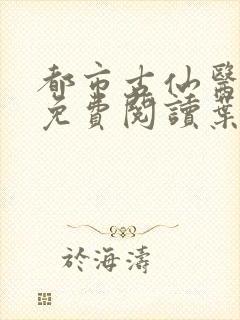 都市古仙醫
免費閱讀葉
於海濤